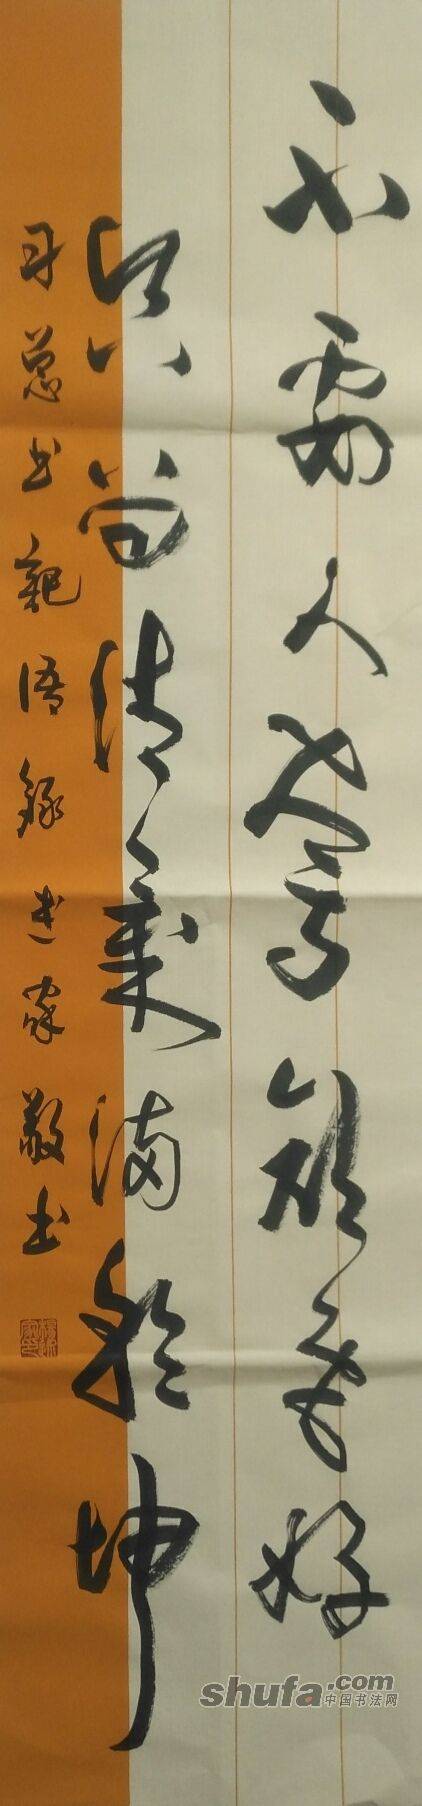 不需人夸颜色好
只留清气满乾坤
习总书记语录建家敬书
shufa.com
中国书法网